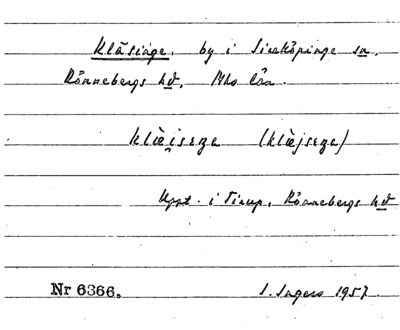 Kläsinge, by i Sireköpinge sn,
Rönnebergs hd, Mho län.
klä̀i̯seŋe (klä̀jseŋe)
Uppt. i Tirup, Rönnebergs hd
Nr 6366. I. Ingers 1957.